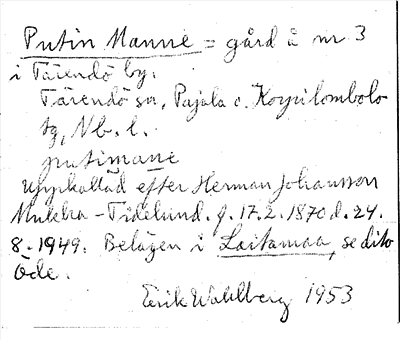 Putin Manne = gård å nr 3
i Tärendö by.
Tärendö sn, Pajala o. Korpilombolo
tg, Nb. l.
putimane
Uppkallad efter Herman Johansson
Mukka - Fidelund. f. 17.2.1870 d. 24.
8.1949. Belägen i Laitamaa, se dito
Öde.
Erik Wahlberg 1953